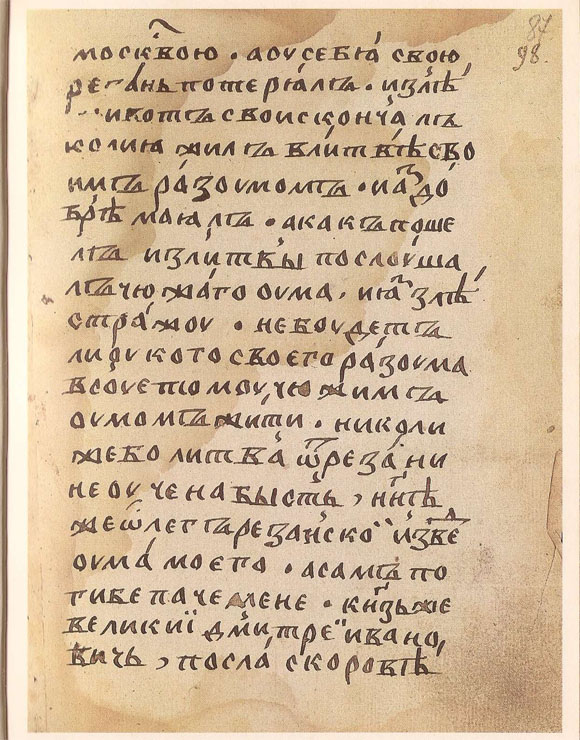 87
98.
москвою · аоусебıа свою
резаньпотерıалъ · излѣ
ивотъсвоисконча лъ
колиꙗ жилъ влитвѣсво
имъ разоумомъ · иꙗ до
брѣ маıалъ · акакъпоше
лъ излитвы послоуша
лъчюжаго оума · иꙗ злѣ
стражоу · небоудетъ
лиоукогосвоего разоума
всоуетомоучюжимъ
оумомъжити · николи
жебо литва ѿреза ни
неоученабысть, ннѣ
жеѿлегърезанско извѣ
оума моего · асамъ по
гибепаче мене · кнзьже
великиї дмитреиивано
вичь, посла скоровѣ